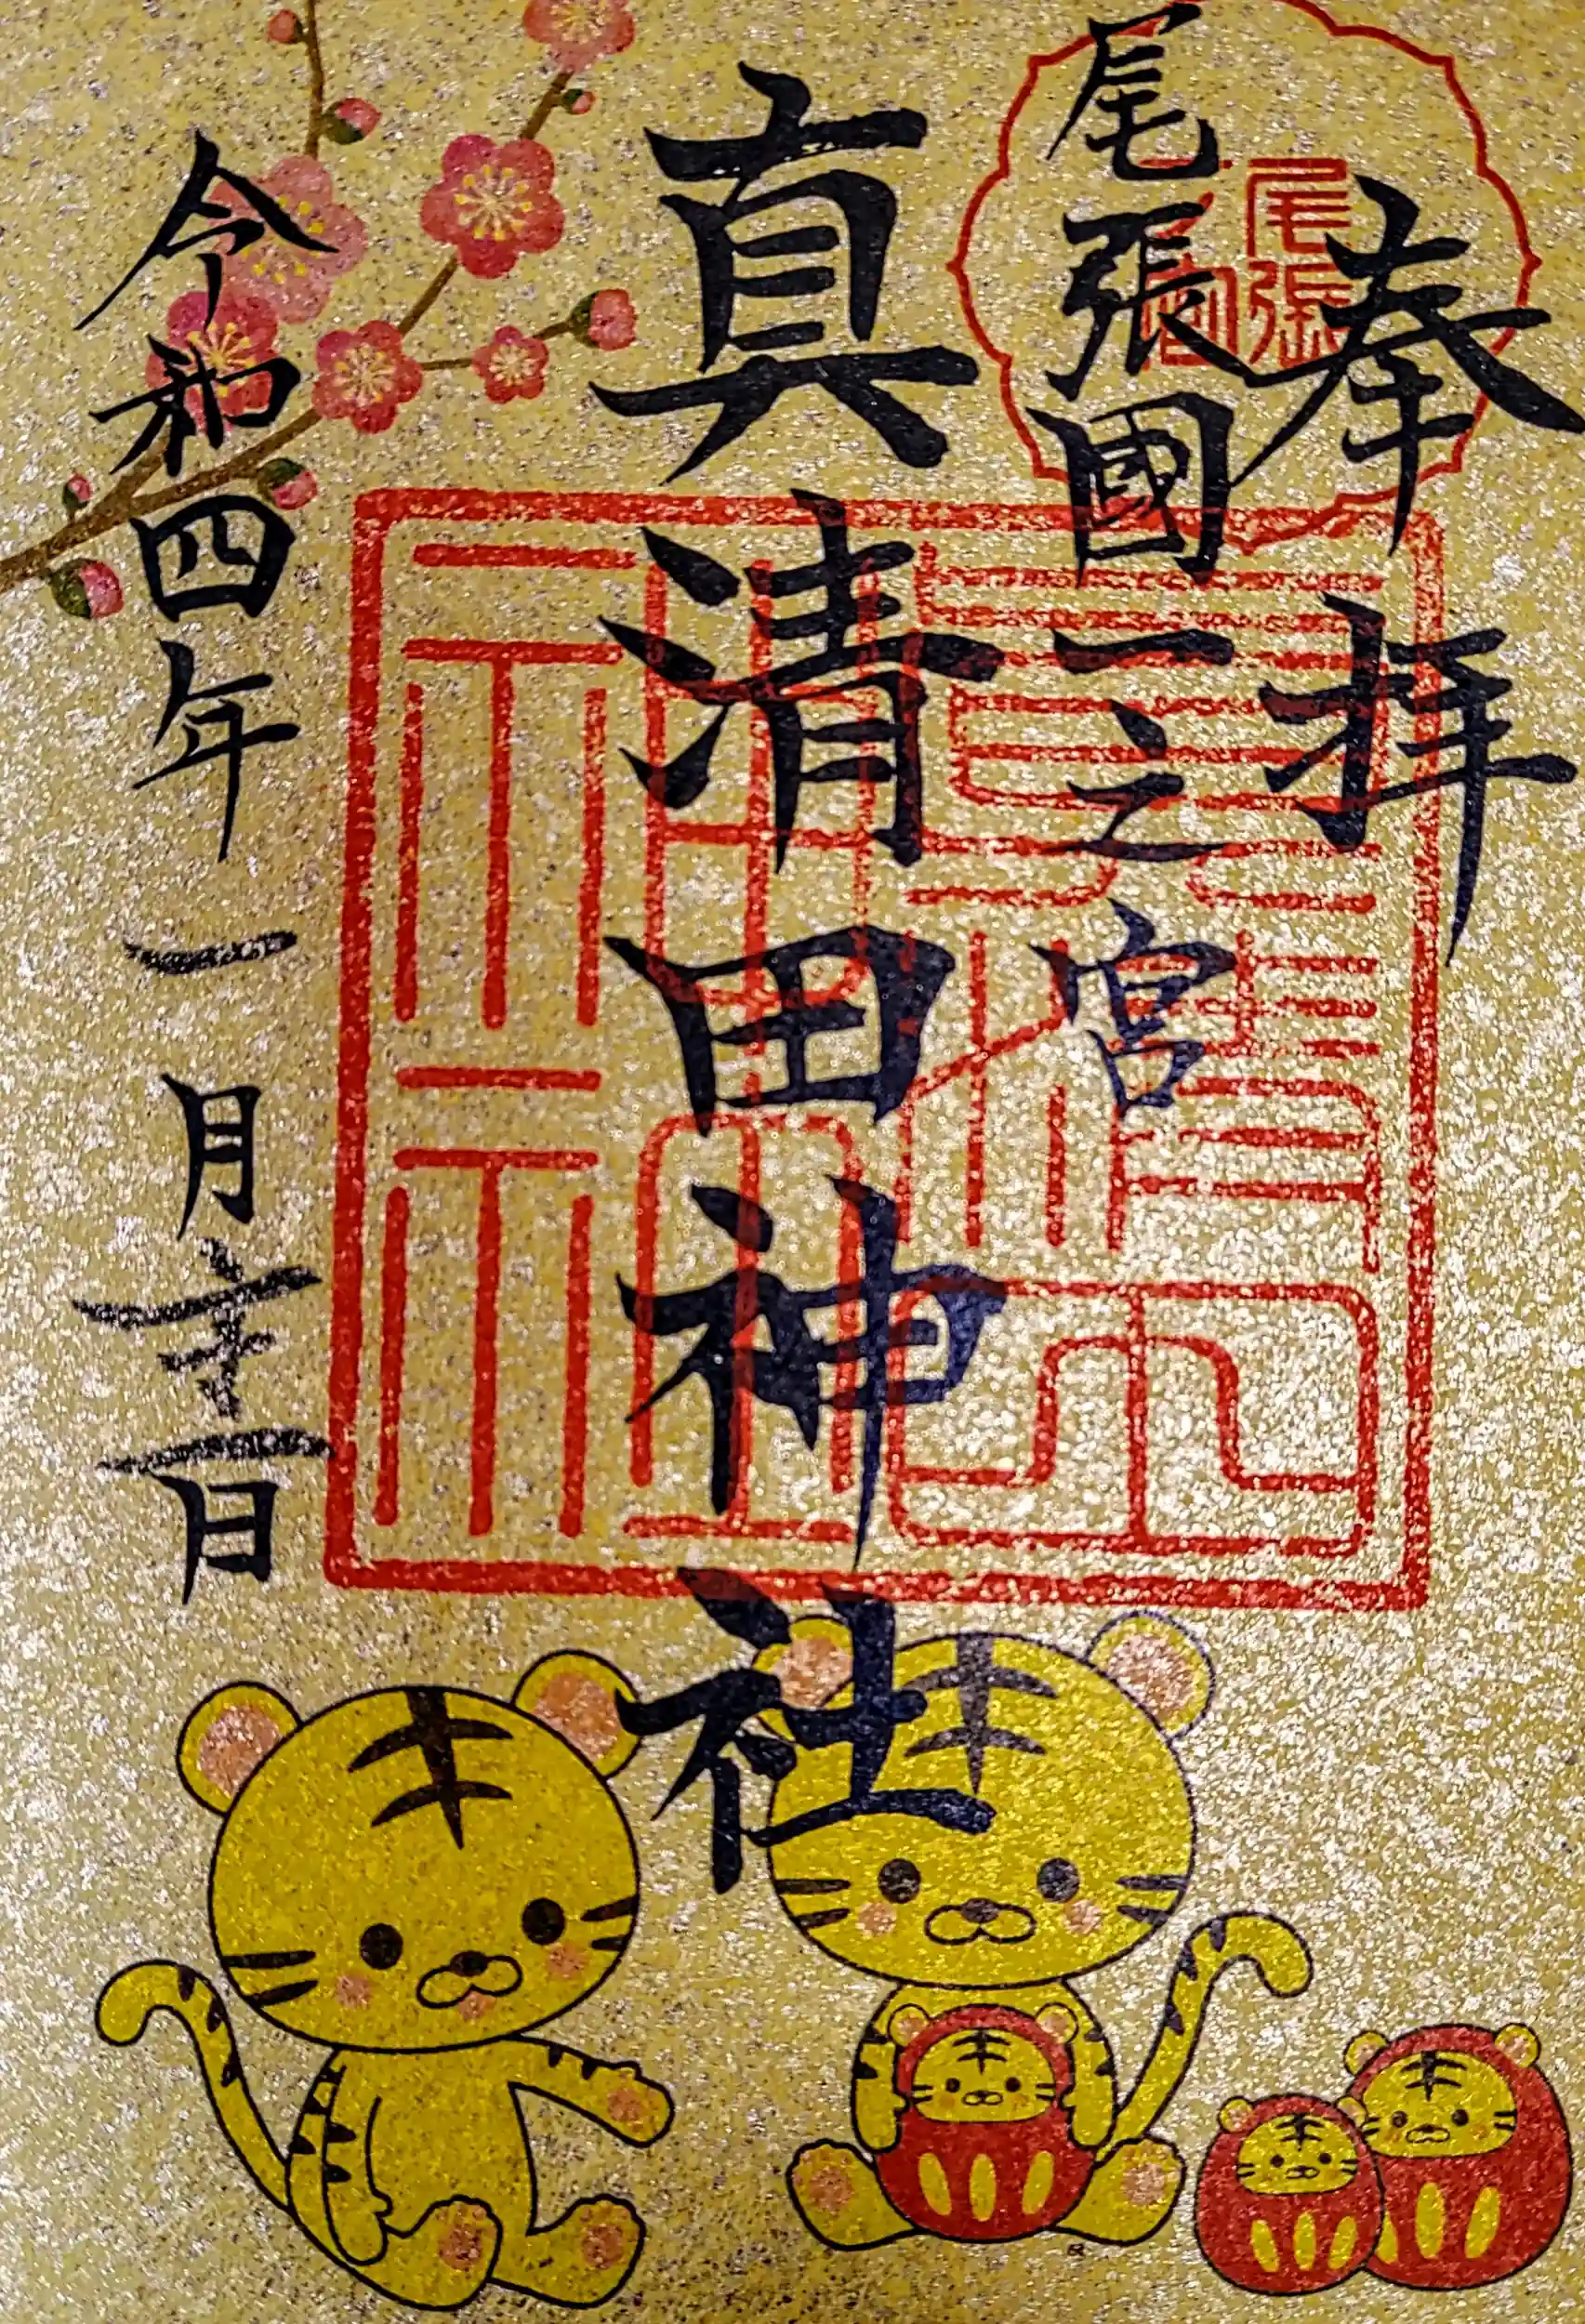 奉拝
尾張國一之宮
真清田神社
令和四年一月十二日
尾張
真清田
神社